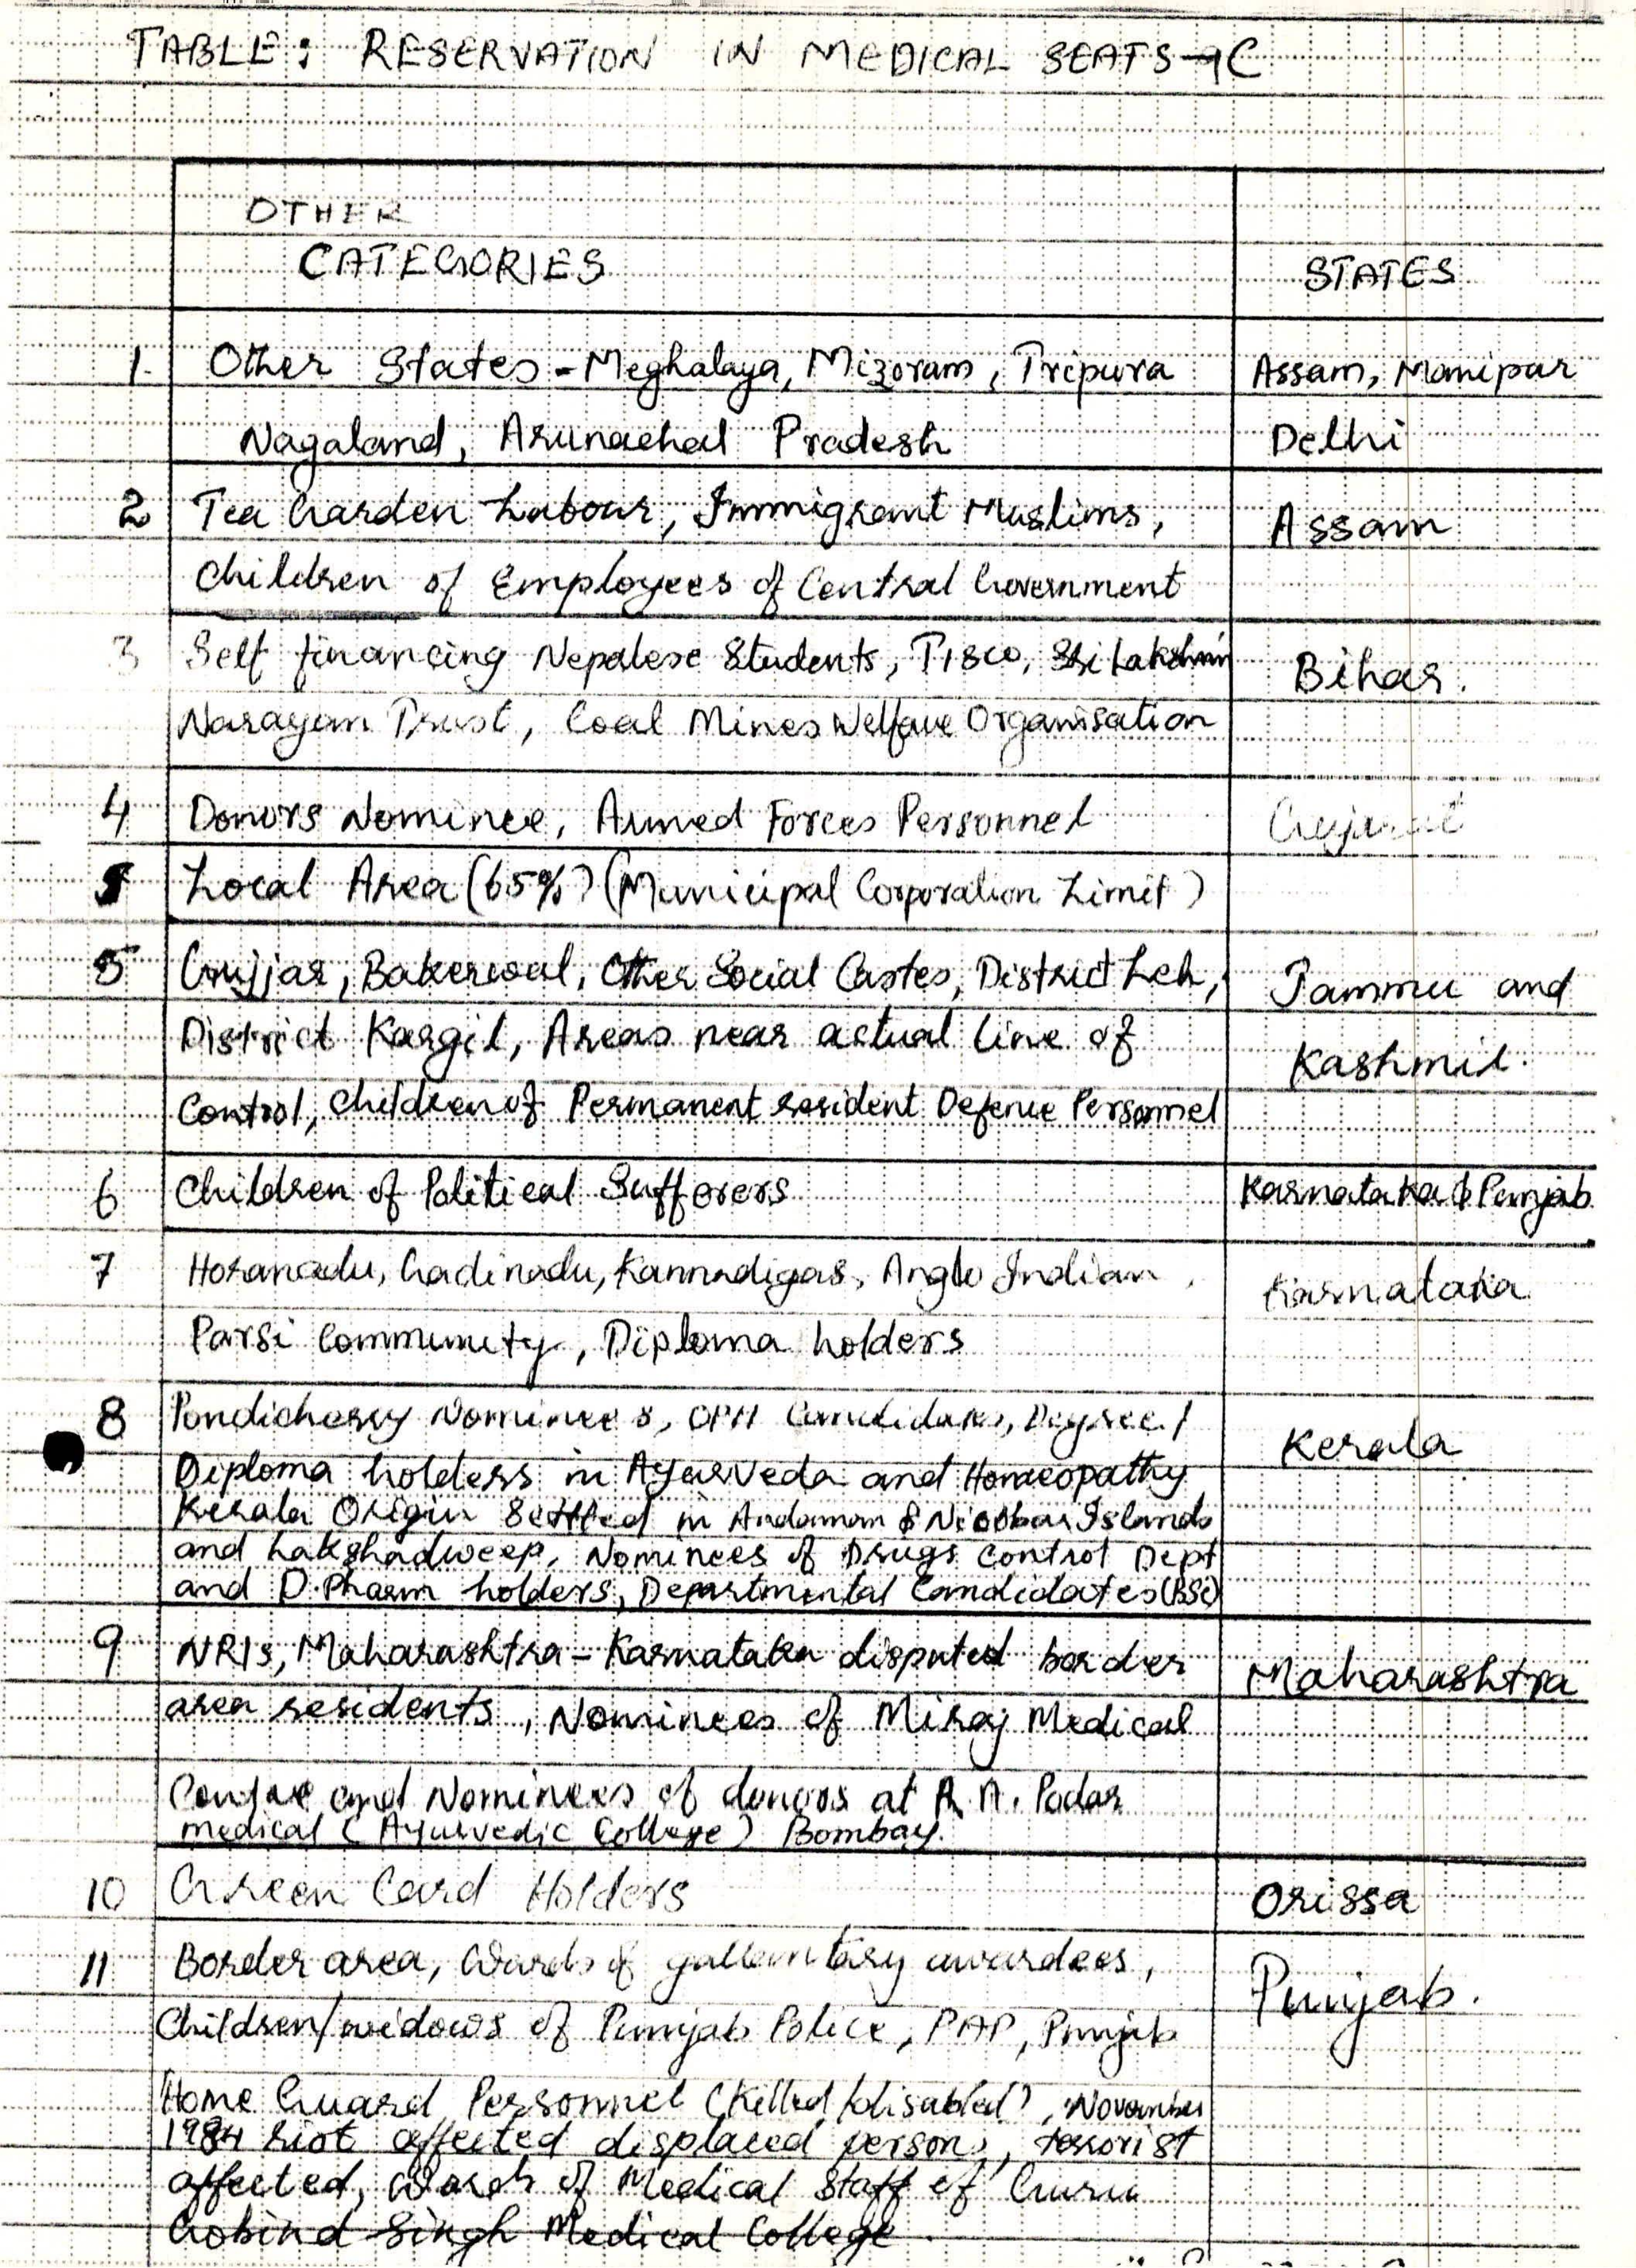 TABLE: RESERVATION IN MEDICAL SEATS-9C
OTHER
CATEGORIES
STATES
1. Other States - Meghalaya, Mizoram, Tripura Assam, Manipur
Nagaland, Arunachal Pradesh Delhi
2 Tea Garden Labour, Immigrant Muslims, Assam
Children of Employees of Central Government
3 Self financing Nepalese Students, TISCO, Sri Lakshmi Bihar.
Narayan Trust, Coal Mines Welfare Organisation
4 Donors Nominee, Armed Forces Personnel Gujarat
5 Local Area (65%) (Municipal Corporation Limit)
5 Gujjar, Bakerwal, Other Social Castes, District Leh, Jammu and
District Kargil, Areas near actual line of Kashmir.
Control, Children of Permanent resident Defence Personnel
6 Children of Political Sufferers Karnataka & Punjab
7 Horanadu, Gadinadu, Kannadigas, Anglo Indian, Karnataka
Parsi Community, Diploma holders
8 Pondicherry Nominees, OPH Candidates, Degree/ Kerala
Diploma holders in Ayurveda and Homeopathy
Kerala Origin Settled in Andaman & Nicobar Islands
and Lakshadweep, Nominees of Drugs Control Dept
and D.Pharm holders, Departmental Candidates (BSc)
9 NRIs, Maharashtra - Karnataka disputed border Maharashtra
area residents, Nominees of Miraj Medical
and Nominees of donors at R. A. Podar
medical (Ayurvedic College) Bombay.
10 Green Card Holders Orissa
11 Border area, Wards of gallantary awardees, Punjab.
Children/widows of Punjab Police, PAP, Punjab
Home Guard Personnel (Killed/disabled), November
1984 riot affected displaced persons, terrorist
affected, Wards of Medical Staff of Guru
Gobind Singh Medical College.